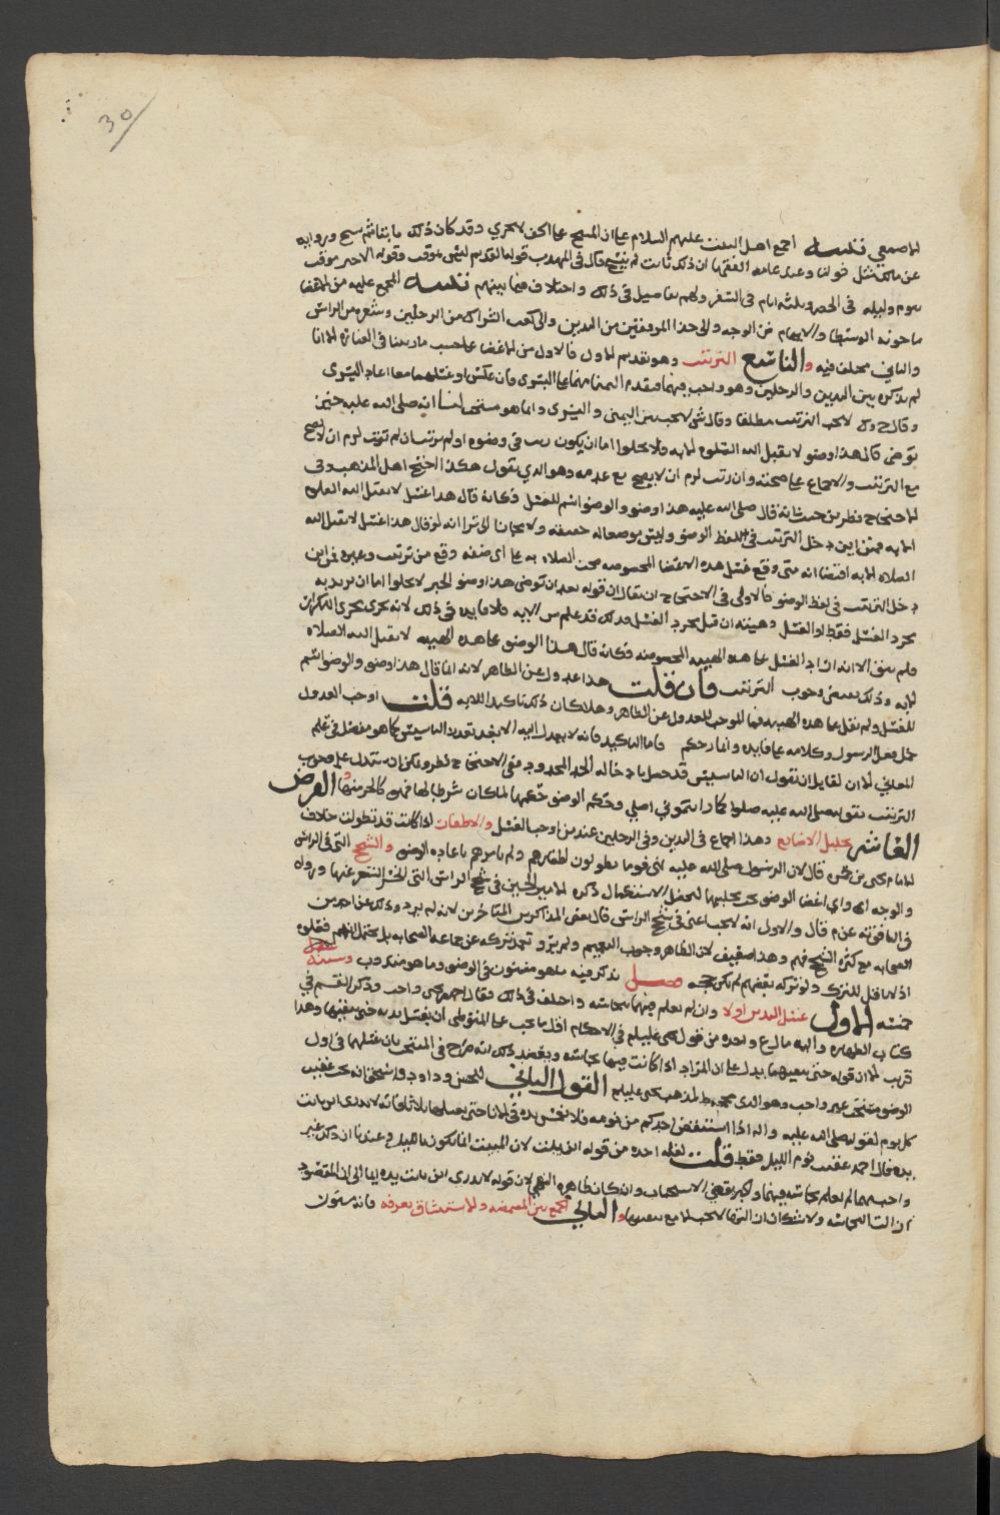 30
تنبيه اجمع اهل البيت عليهم السلام على ان المسح على الخف لا يجزي وقد كان ذلك
عن مالك مثل قولنا وعند عامة الفقها ان ذلك ثابت لم ينسخ وقال في المهذب قوله القديم ليس بموقت وقوله الاخير موقت
يوم وليله في الحضر وثلثه ايام في السفر ولهم تفاصيل في ذلك واختلاف فيما بينهم تنبيه المجمع عليه من الاعضا
ما حوته الوسطا والابهام من الوجه والى حد المرفقين من اليدين والى كعب الشراك من الرجلين وشعره من الراس
والباقي مختلف فيه والتاسع الترتيب وهو تقديم الاول فالاول من الاعضا على حسب ما رتبنا في العباره الا انا
لم نذكره بين اليدين والرجلين وهو واجب فيهما فيقدم اليمنا منهما على اليسرى فان عكس او غسلهما معا اعاد اليسرى
وقال ح وك لا يجب الترتيب مطلقا وقال ش لا يجب بين اليمنى واليسرى وانما هو مستحب لنا انه صلى الله عليه حين
توضى قال هذا وضو لا يقبل الله الصلوه الا به فلا يخلوا اما ان يكون رتب في وضوه او لم يرتب ان لم ترتب لزم ان لا يصح
مع الترتيب والاجماع على صحته وان رتب لزم ان لا يصح مع عدمه وهو الذي نقول هكذا احتج اهل المذهب وفي
الاحتجاج نظر من حيث انه قال صلى الله عليه هذا وضو والوضو اسم للغسل فكانه قال هذا غسل لا يقبل الله الصلوه
الا به فمن اين دخل الترتيب في اللفظ الوضو وليس موضعا له حقيقه ولا مجازا الا ترا انه لو قال هذا غسل لا يقبل الله
الصلاه الا به اقتضا انه متى وقع غسل هذه الاعضا المخصوصه صحت الصلاه به على اي صفه وقع من ترتيب وغيره فمن اين
دخل الترتيب في لفظ الوضو فالاولى في الاحتجاج ان يقال ان قوله بعد ان توضى هذا وضو الخبر لا يخلوا اما ان يريد به
مجرد الغسل فقط او الغسل وهيئته ان قيل مجرد الغسل فذلك قد علم من الايه فلا فايده في ذلك لانه يجرى مجرى التكرار
فلم يبق الا انه اراد الغسل على هذه الهييه المخصوصه فكانه قال هذا الوضو على هذه الهييه لا يقبل الله الصلاه
الا به وذلك يقتضي وجوب الترتيب فان قلت هذا عدول عن الظاهر لانه انما قال هذا وضو والوضو اسم
للغسل ولم يقل على هذه الهييه فما الموجب للعدول عن الظاهر وهلا كان ذلك تاكيدا للايه قلت اوجب العدول
حمل فعل الرسول وكلامه على فايده وافاد حكم فاما التاكيد فانه لا يعدل اليه الا بعد تعذر التاسيس كما هو مفصل في علم
المعاني الا ان لقايل ان يقول ان التاسيس قد حصل باد خاله
الترتيب بقوله صلى الله عليه صلوا كما رايتموني اصلي وحكم الوضو حكمها لما كان شرطا لها فهو كالجز منها والفرض
العاشر تخليل الاصابع وهذا اجماع في اليدين وفي الرجلين عندنا من اوجب الغسل والاظفار اذا كانت قد تطولت خلاف
الامام يحيى بن حمزه قال لان الرسول صلى الله عليه لقى قوما يطولون اظفارهم ولم يامرهم باعاده الوضو والشجج التي في الراس
والوجه او اي اعضا الوضو
في اليافوخ قال والاول انه لا يجب اعني في شجج الراس قال بعض المذاكرين المتاخرين لانه لم يرد ذلك عن احد من
الصحابه مع كثره الشجج فيهم وهذا ضعيف لان الظاهر وجوب التعميم ولم يرد
اذ لا ناقل للترك ولو تركه بعضهم لم يكن حجه فصل نذكر فيه ما هو مسنون في الوضو وما هو مندوب وسننه
خمسه الاول غسل اليدين اولا وان لم نعلم فيهما نجاسه واختلف في ذلك فقال احمد بن يحيى واجب وذكر القسم في
كتاب الطهاره واليه مال ع واحده من قول يحيى عليلم في الاحكام اقل ما يجب على المتوضي ان يغسل يديه حتى ينقيها وهذا
قريب الا ان قوله حتى ينقيهما يدل على ان المراد اذا كانت فيهما نجاسه ويعضد ذلك انه صرح في المنتخب بان غسلهما في اول
الوضو مستحب غير واجب وهو الذي لمذهب يحيى عليلم القول الثاني للحسن وداود
كل يوم لقوله صلى الله عليه واله اذا استيقض احدكم من نومه فلا يغمس يده في الانا حتى يغسلها ثلاثا فانه لا يدري اين باتت
يده وقال احمد عقيب نوم الليل فقط قلت لعله اخده من قوله اين باتت لان المبيت انما يكون بالليل وعندنا ان ذلك غير
واجب مهما لم نعلم نجاسه فيهما والخبر يقضي الاستحباب وان كان ظاهره النهي لان قوله لا يدري اين باتت يده ايما الى ان المقصود
ازالت النجاسه ولا شك ان ازالتها لا تجب الا مع تيقنها والثاني الجمع بين المضمضه والاستنشاق بغرفه فانه مسنون